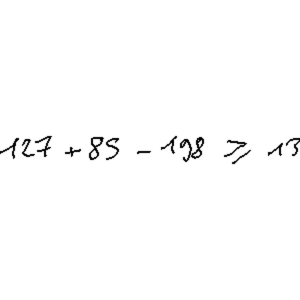 127 + 85 - 198 ⩾ 13